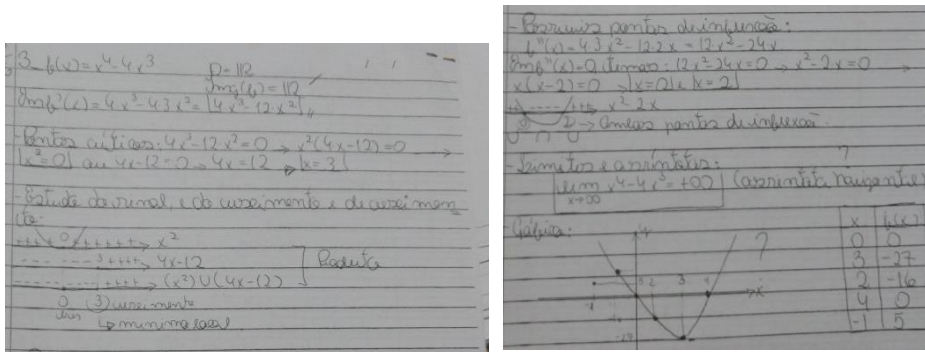 3_ f(x) = x⁴-4x³
D = IR
Img(f) = IR
f'(x) = 4x³-4.3x² = 4x³-12.x²
- Pontos críticos: 4x³-12.x² = 0 → x²(4x-12) = 0 →
x² = 0 ou 4x-12 = 0 → 4x = 12 → x = 3
- Estudo do sinal, e do crescimento e decrescimen
to:
++++ 0 +++++ → x²
--- --- 3 ++++ → 4x-12
------- ++++ → (x²)U(4x-12)
Produto
0 3 crescimento
↳ mínimo local
- Possíveis pontos de inflexão:
f''(x) = 4.3x²-12.2x = 12x²-24x
f''(x) = 0, temos: 12x²-24x = 0 → x²-2x = 0 →
x(x-2) = 0 → x = 0 e x = 2
++ ---- +++ x²-2x
0 2 → Ambos pontos de inflexão.
- Limites e assíntotas: ?
lim x⁴-4x³ = +∞
x→∞
- Gráfico: ?
x f(x)
0 0
3 -27
2 -16
4 0
-1 5
y
x
-1
2
3
4
-27